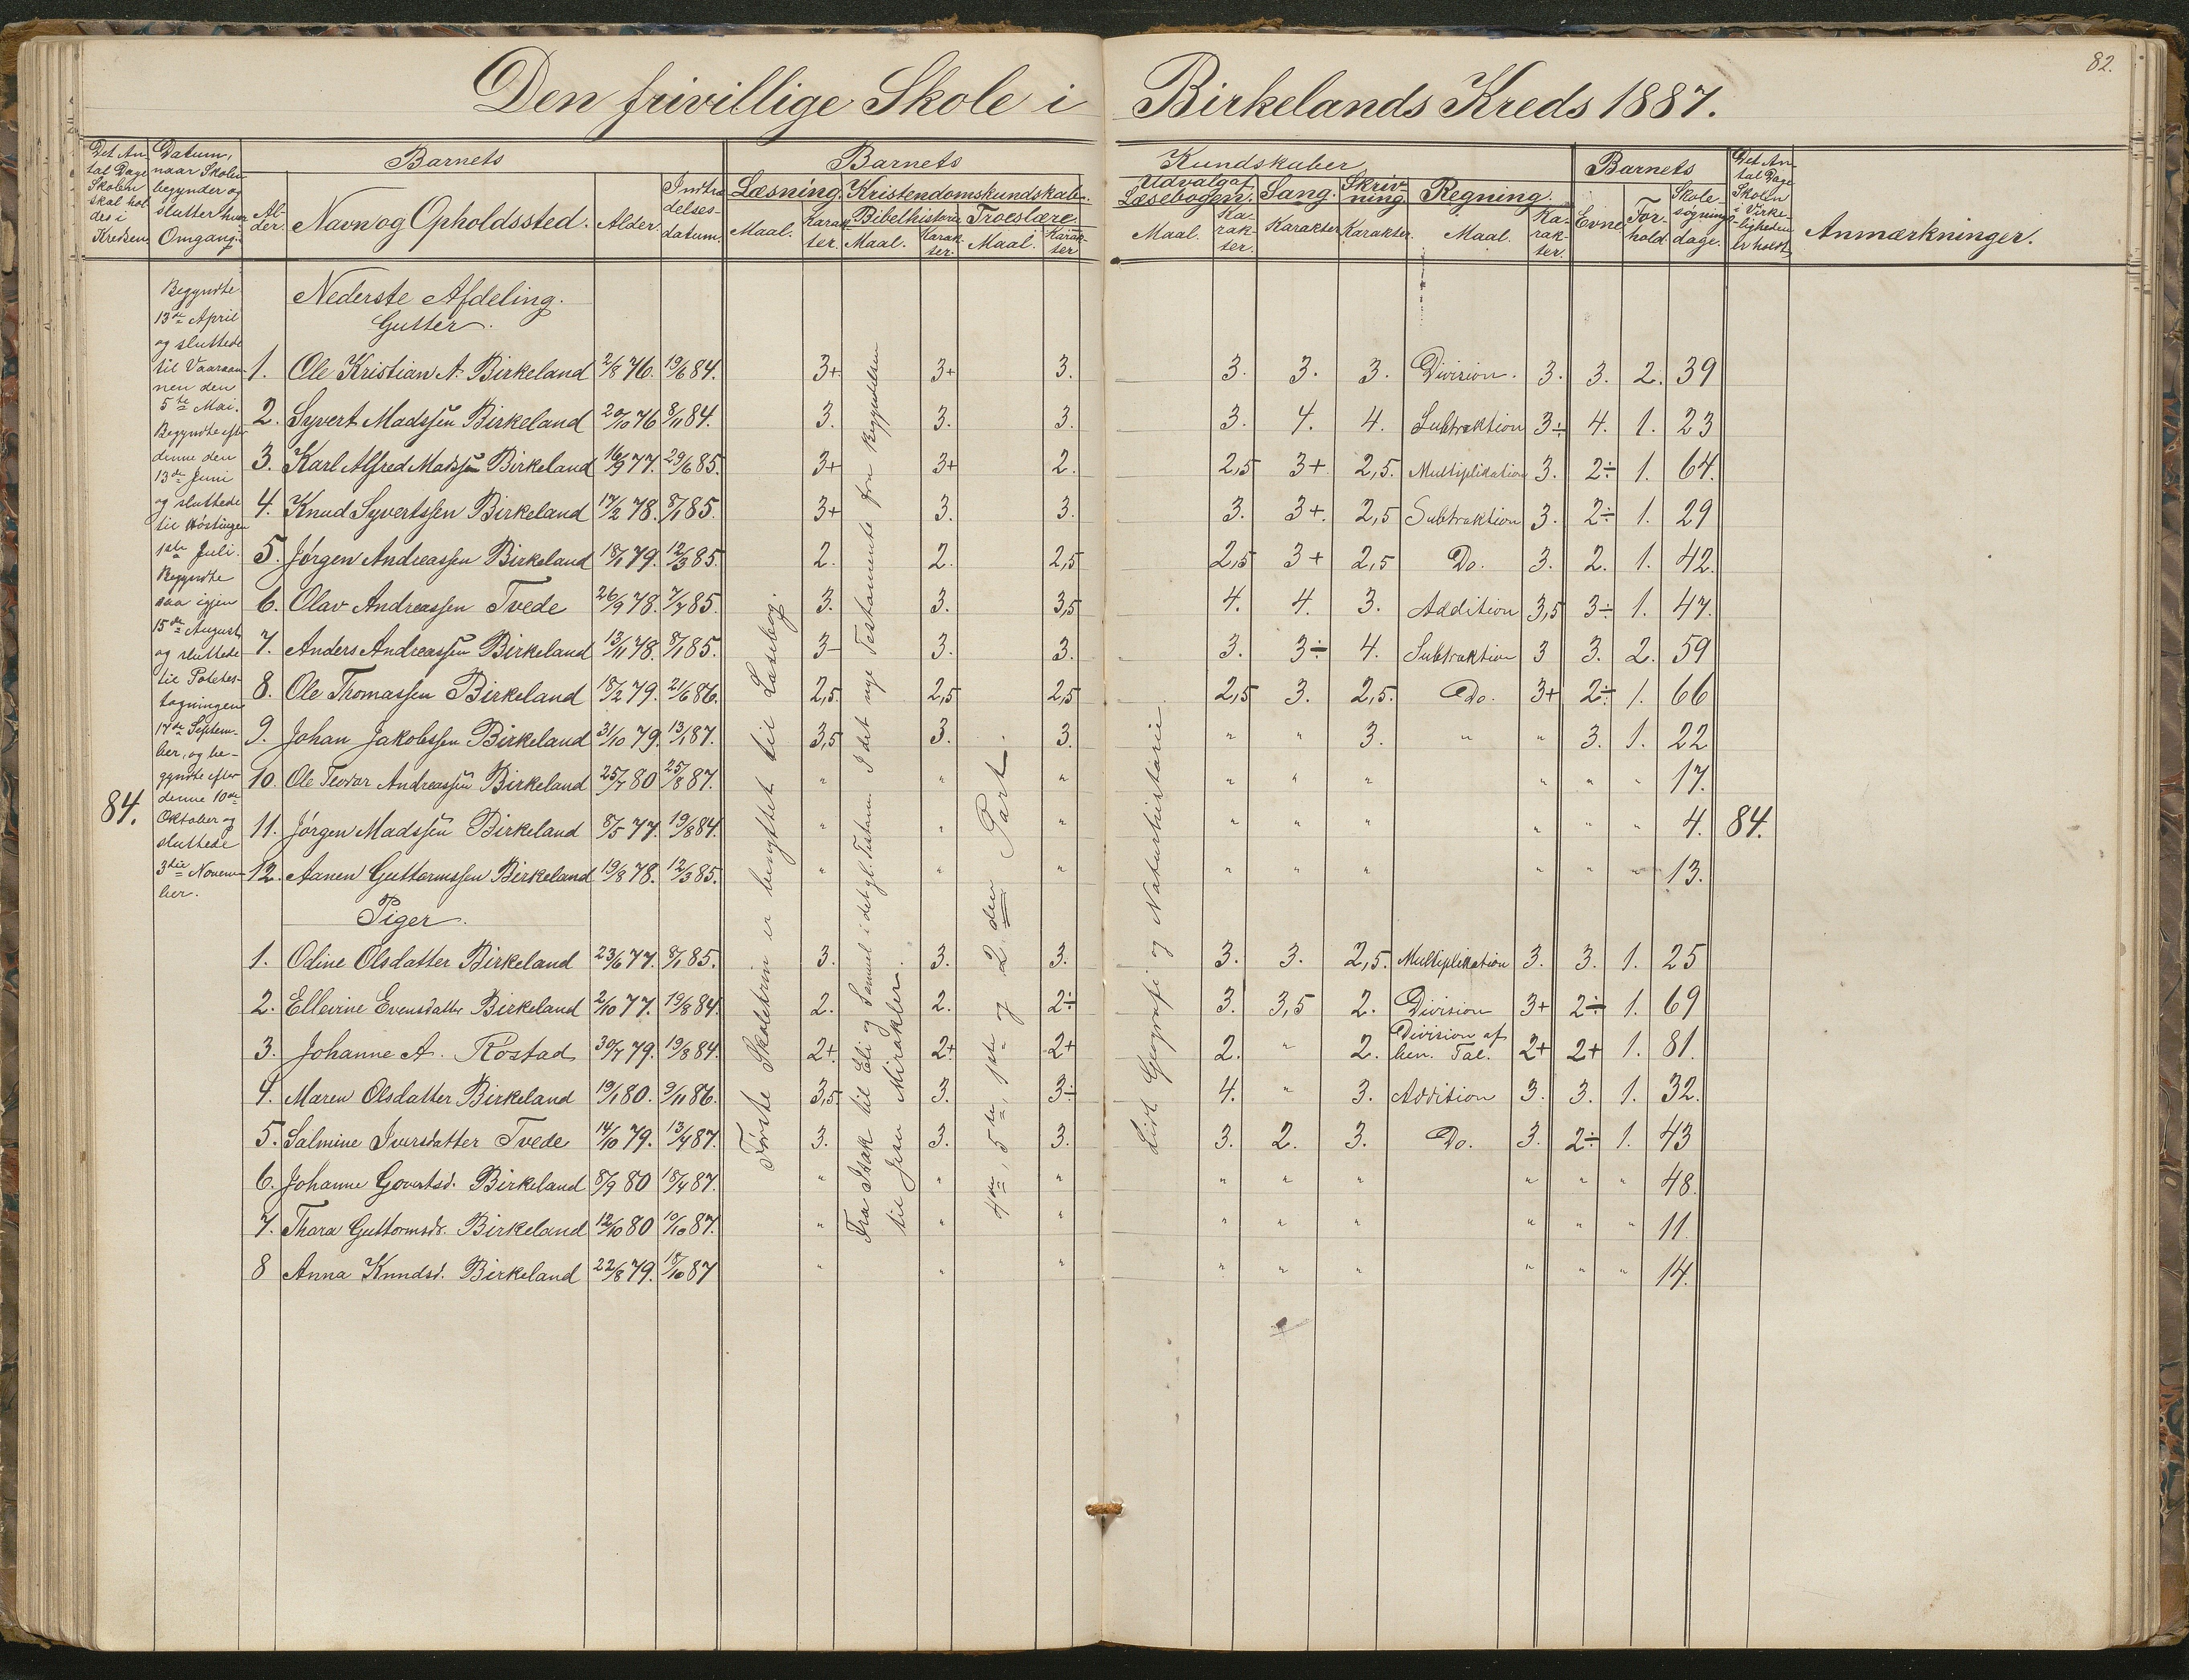 82.
Den frivillige Skole i Birkelands Kreds 1887.
Det An- tal Dage Skolen skal hol- des i Kredsen
Datum, naar Skolen begynder og slutter hver Omgang.
Barnets
Al- der. Navn og Opholdssted. Alder. Indtræ- delses- datum.
Barnets Kundskaber
Læsning. Maal. Karak- ter.
Kristendomskundskab.
Bibelhistorie Maal. Karak- ter. Troeslære. Maal. Karak- ter
Udvalg af Læsebogen. Maal. Ka- rak- ter.
Sang. Karakter
Skriv- ning Karakter.
Regning. Maal. Ka- rak- ter.
Barnets
Evne For- hold. Skole- søgnings- dage.
Det An- tal Dage Skolen i Virke- ligheden er holdt
Anmærkninger.
84.
Begyndte
13de April
og sluttede
til Vaaraan-
nen den
5te Mai.
Begyndte efter
denne den
13de Juni
og sluttede
til Høstingen
1ste Juli.
Begyndte
saa igjen
15de August
og sluttede
til Potetes-
tagningen
17de Septem-
ber, og be-
gyndte efter
denne 10de
Oktober og
sluttede
3die Novem-
ber.
Nederste Afdeling.
Gutter.
1. Ole Kristian A. Birkeland 2/8 76. 19/6 84. 3+ 3+ 3. 3. 3. 3. Division. 3. 3. 2. 39
2. Syvert Madssen Birkeland 20/10 76 8/11 84. 3. 3. 3. 3. 4. 4. Subtraktion 3÷ 4. 1. 23
3. Karl Alfred Madssen Birkeland 16/9 77. 29/6 85. 3+ 3+ 2. 2,5 3+. 2,5. Multiplikation 3. 2÷ 1. 64.
4. Knud Syvertssen Birkeland 17/2 78. 8/1 85. 3+ 3. 3. 3. 3+. 2,5 Subtraktion 3. 2÷ 1. 29
5. Jørgen Andreassen Birkeland 18/1 79. 12/3 85. 2. 2. 2,5 2,5 3+ 2,5 Do. 3. 2. 1. 42.
6. Olav Andreassen Tvede 26/9 78. 7/7 85. 3. 3. 3,5 4. 4. 3. Addition 3,5 3÷ 1. 47.
7. Anders Andreassen Birkeland 13/11 78. 8/1 85. 3- 3. 3. 3. 3÷ 4. Subtraktion 3 3. 2. 59
8. Ole Thomassen Birkeland 18/2 79. 21/6 86. 2,5. 2,5 2,5 2,5 3. 2,5. Do. 3+ 2÷ 1. 66
9. Johan Jakobssen Birkeland 31/10 79. 13/1 87. 3,5 3. 3. " " 3. " " 3. 1. 22
10. Ole Teodor Andreassen Birkeland 25/7 80 25/8 87. " " " " " " " " " 17.
11. Jørgen Madssen Birkeland 8/5 77. 19/8 84. " " " " " " " " " 4. 84.
12. Aanen Guttormssen Birkeland 19/8 78. 12/3 85. " " " " " " " " " 13.
Piger.
1. Odine Olsdatter Birkeland 23/6 77. 8/1 85. 3. 3. 3. 3. 3. 2,5. Multiplikation 3. 3. 1. 25
2. Ellevine Evensdatter Birkeland 2/10 77. 19/8 84. 2. 2. 2÷ 3. 3,5 2. Division 3+ 2÷ 1. 69
3. Johanne A. Rostad 30/7 79. 19/8 84. 2+. 2+ 2+ 2. " 2. Division af ben. Tal. 2+ 2+ 1. 81.
4. Maren Olsdatter Birkeland 19/1 80. 9/11 86. 3,5. 3. 3÷ 4. " 3. Addition 3. 3. 1. 32.
5. Salmine Iversdatter Tvede 14/10 79. 13/4 87. 3. 3. 3. 3. 2. 3. Do. 3. 2÷ 1. 43
6. Johanne Govertsd. Birkeland 8/9 80 18/4 87. " " " " " " " " " 48.
7. Thara Guttormsdr. Birkeland 12/10 80 10/10 87. " " " " " " " " " 11.
8 Anna Knudsd. Birkeland 22/8 79. 18/10 87 " " " " " " " " " 14.
Første Skoletrin er benyttet til Læsebog.
Fra Isak til Eli og Samuel i det gl. Testam. I det nye Testamente fra Begyndelsen
til Jesu Mirakler.
4de, 5te, 1ste og 2den Part.
Lidt Geografi og Naturhistorie.